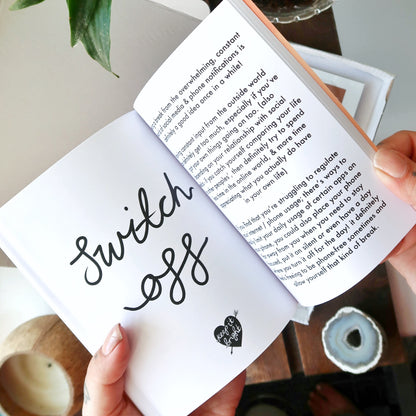 Switch
off
keep it
simple
break from the overwhelming, constant
of social media & phone notifications is
definitely a good idea once in a while!
constant input from the outside world
definitely get too much, especially if you've
of your own things going on too. (also
depending on your relationship with social
if you catch yourself comparing your life
other peoples', then definitely try to spend
time in the online world, & more time
appreciating what you actually do have
in your own life)
find that you're struggling to regulate
internet / phone usage, there's ways to
limit your daily usage of certain apps on
phone, you could also place your phone
away from you when you need to stay
focused, put it on silent or even have a day
where you turn it off for the day! it definitely
freeing to be phone-free sometimes and
allow yourself that kind of break.